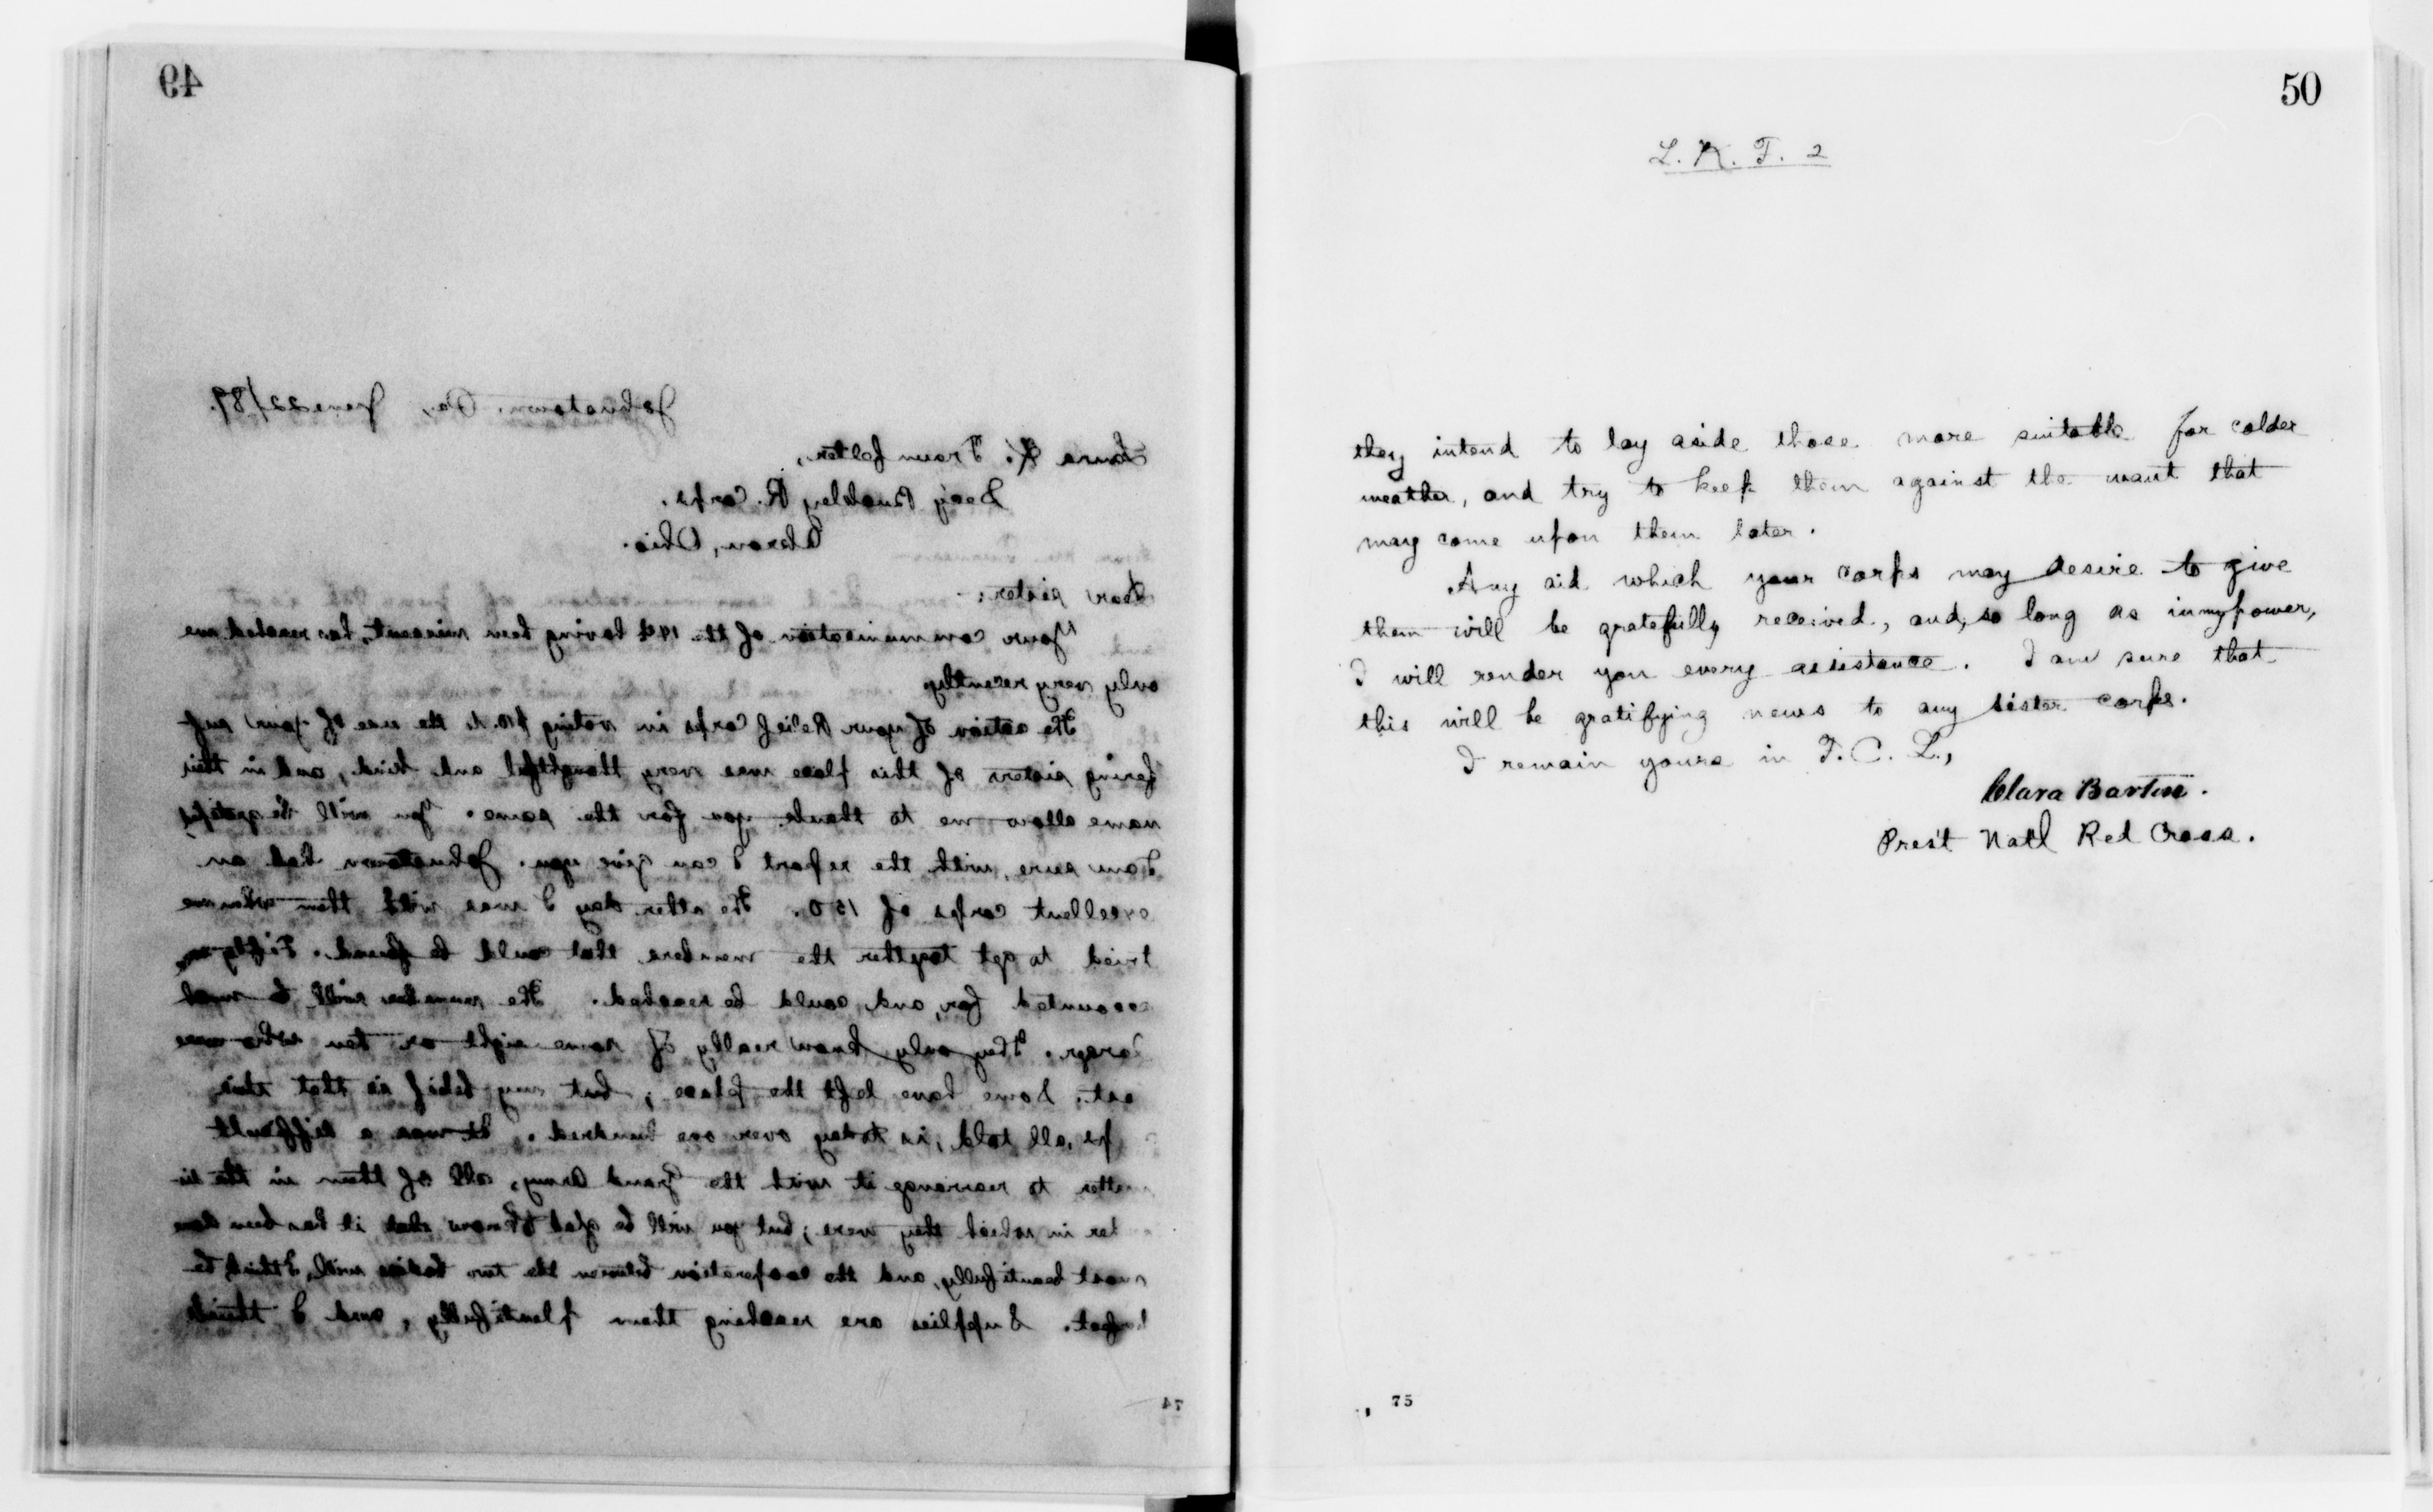 49
Johnstown, Pa., June 22/89.
Laura K. Traunfelter,
Sec'y Buckley R. Corps.
Akron, Ohio.
Dear sister:-
Your communication of the 14th having been missent, has reached me
only very recently.
The action of your Relief Corps in voting $10. to the use of your suf
fering sisters of this place was very thoughtful and kind, and in their
name allow me to thank you for the same. You will be gratified
I am sure, with the report I can give you. Johnstown had an
excellent corps of 150. The other day I was with them when we
tried to get together the members that could be found. Fifty
accounted for, and could be reached. The number will be much
larger. They only know really of some eight or ten who were
lost. Some have left the place; but my belief is that this
all told, is today over one hundred. It was a difficult
matter to rearrange it with the Grand Army, all of them in the
in which they were; but you will be glad to know that it has been done
most beautifully, and the cooperation between the two bodies will, I think, be
perfect. Supplies are reaching them plentifully, and I think
74
50
L. K. T. 2
they intend to lay aside those more suitable for colder
weather, and try to keep them against the want that
may come upon them later.
Any aid which your corps may desire to give
them will be gratefully received, and, so long as in my power,
I will render you every assistance. I am sure that
this will be gratifying news to any sister corps.
I remain yours in F. C. L.,
Clara Barton.
Pres't Nat'l Red Cross.
75